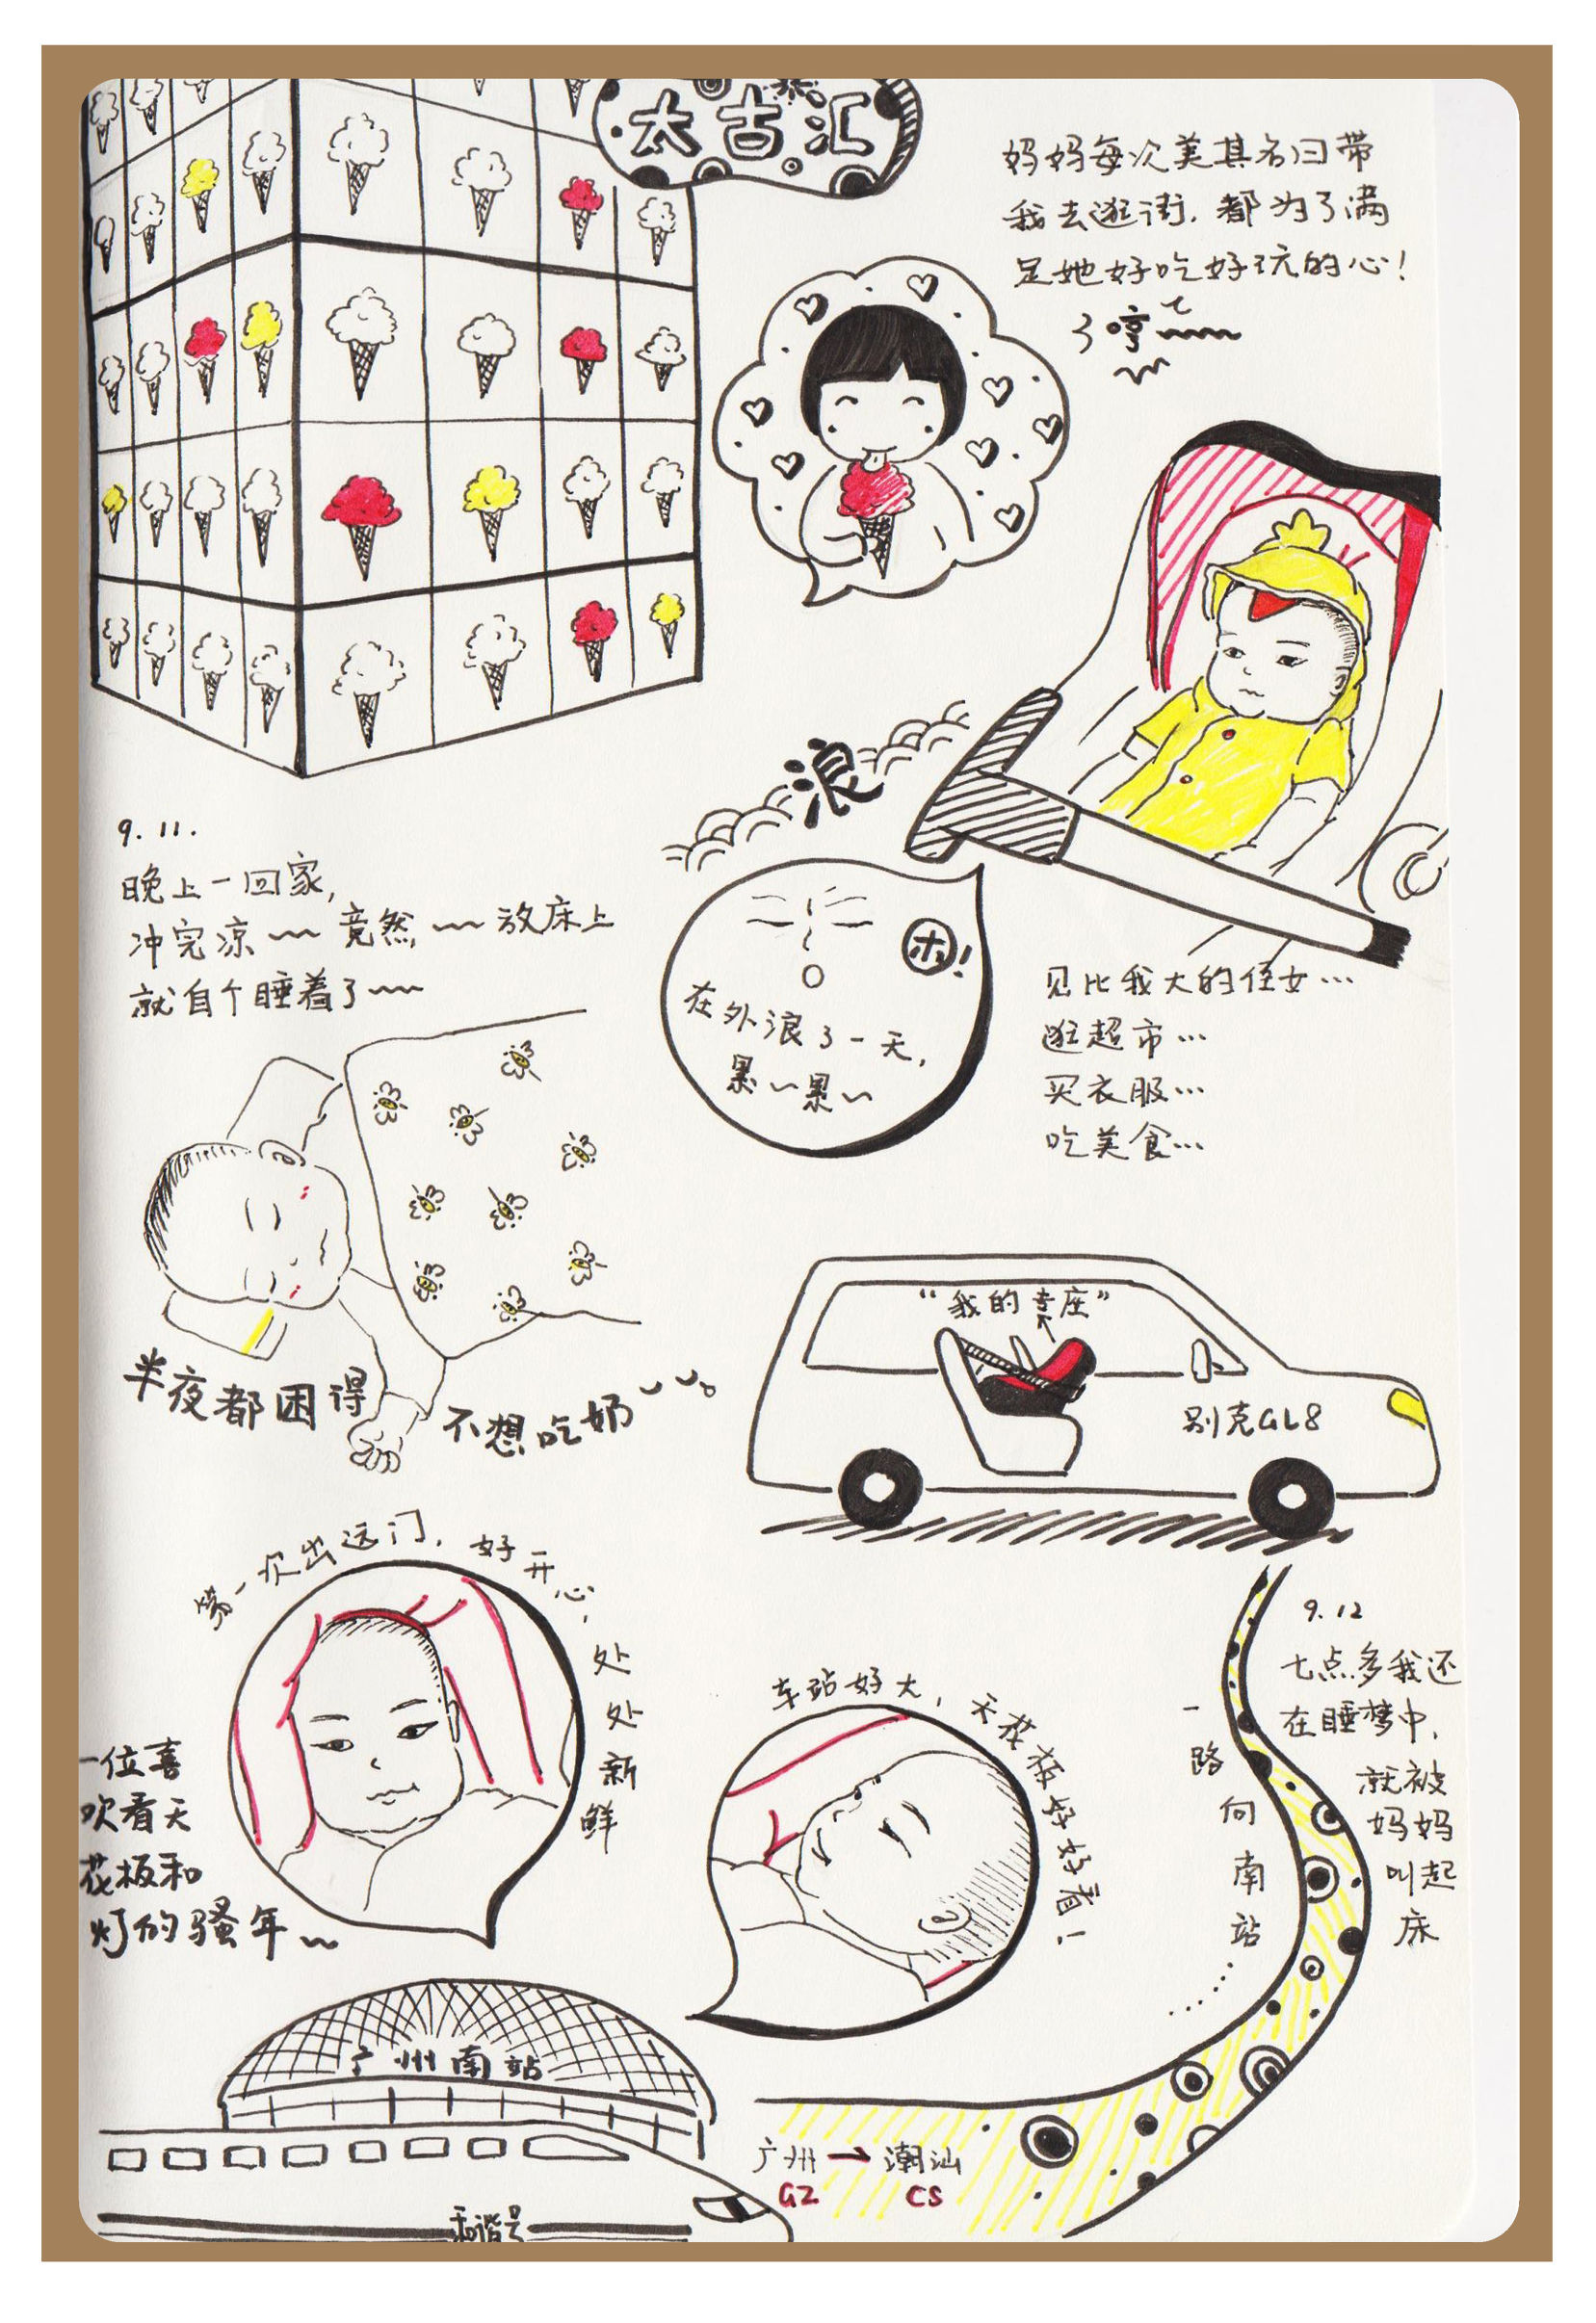 太古汇
妈妈每次美其名曰带
我去逛街,都为了满
足她好吃好玩的心!
哼~~
浪
9.11.
晚上一回家,
冲完凉~~竟然~~放床上
就自个睡着了~~
在外浪了一天,
累~累~
见比我大的侄女…
逛超市…
买衣服…
吃美食…
半夜都困得
不想吃奶
“我的专座”
别克GL8
第一次出远门,好开心,处处新鲜
一位喜
欢看天
花板和
灯的骚年~
车站好大,天花板好好看!
9.12
七点多我还
在睡梦中,
就被
妈妈
叫起
床
一路向南站……
广州南站
广州→潮汕
GZ CS
和谐号